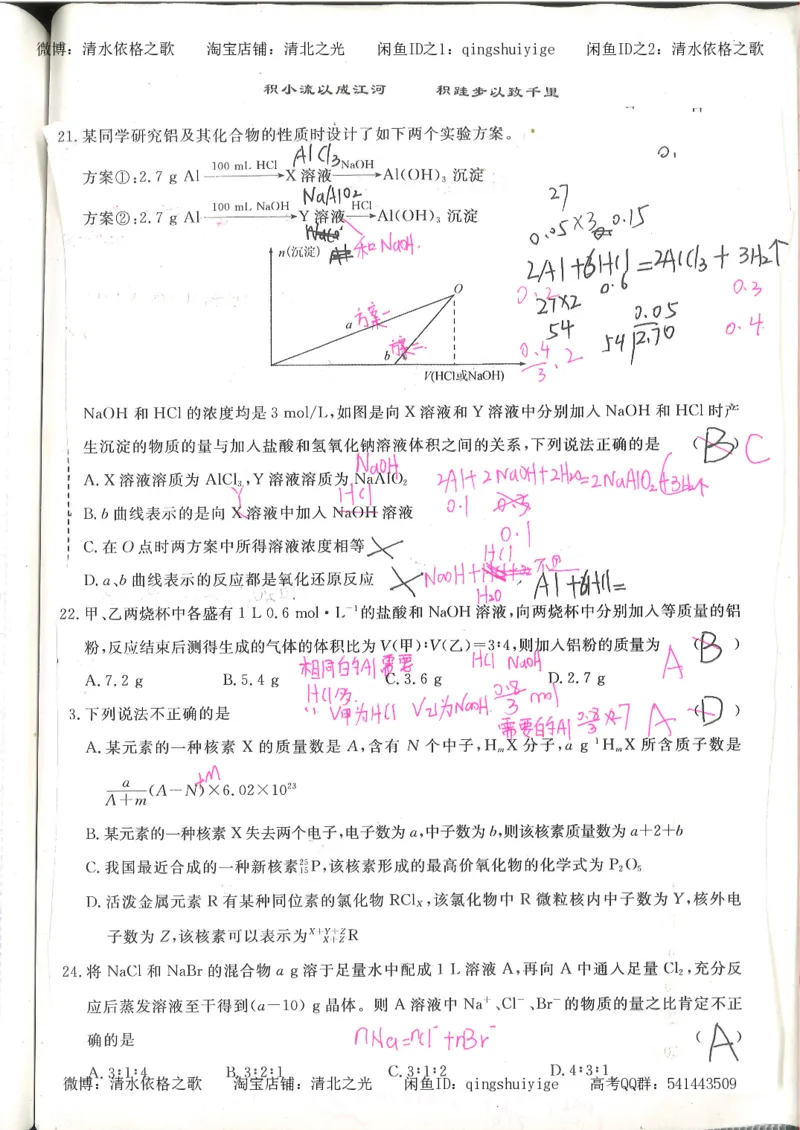 微博：清水依格之歌 淘宝店铺：清北之光 闲鱼ID之1：qingshuiyige 闲鱼ID之2：清水依格之歌
积小流以成江河 积跬步以致千里
21.某同学研究铝及其化合物的性质时设计了如下两个实验方案。
0.
方案①:2.7 g Al 100 mL HCl X 溶液 NaOH Al(OH)₃ 沉淀
AlCl₃
方案②:2.7 g Al 100 mL NaOH Y 溶液 HCl Al(OH)₃ 沉淀
NaAlO₂
和NaOH.
27
0.05×3 0.15
2Al+6HCl=2AlCl₃+3H₂↑
0.2 0.6 0.3
27×2
54
0.05
54 2.70
0.4
0.4
3 .2
n(沉淀)
O
a
方案一
b
方案二
V(HCl或NaOH)
NaOH 和 HCl 的浓度均是 3 mol/L,如图是向 X 溶液和 Y 溶液中分别加入 NaOH 和 HCl 时产
生沉淀的物质的量与加入盐酸和氢氧化钠溶液体积之间的关系,下列说法正确的是 ( B ) C
NaOH
A. X 溶液溶质为 AlCl₃,Y 溶液溶质为 NaAlO₂
2Al+2NaOH+2H₂O=2NaAlO₂+3H₂↑
0.1
0.1
Y HCl
B. b 曲线表示的是向 X 溶液中加入 NaOH 溶液
C. 在 O 点时两方案中所得溶液浓度相等 ×
D. a、b 曲线表示的反应都是氧化还原反应 ×
HCl
NaOH+
H₂O
Al+6HCl=
22. 甲、乙两烧杯中各盛有 1 L 0.6 mol·L⁻¹的盐酸和 NaOH 溶液,向两烧杯中分别加入等质量的铝
粉,反应结束后测得生成的气体的体积比为 V(甲):V(乙)=3:4,则加入铝粉的质量为 ( B )
A
A. 7.2 g B. 5.4 g C. 3.6 g D. 2.7 g
相同的Al需要 HCl NaOH
HCl多.
∵ V甲为HCl V乙为NaOH. 0.8/3 mol
需要的Al 0.8/3 ×27
3. 下列说法不正确的是 ( D )
A
A. 某元素的一种核素 X 的质量数是 A,含有 N 个中子,HₘX 分子,a g ¹HₘX 所含质子数是
a/(A+m) (A−N)×6.02×10²³
+m
B. 某元素的一种核素 X 失去两个电子,电子数为 a,中子数为 b,则该核素质量数为 a+2+b
C. 我国最近合成的一种新核素²⁵₁₅P,该核素形成的最高价氧化物的化学式为 P₂O₅
D. 活泼金属元素 R 有某种同位素的氯化物 RClₓ,该氯化物中 R 微粒核内中子数为 Y,核外电
子数为 Z,该核素可以表示为 X+Y+Z X+Z R
24. 将 NaCl 和 NaBr 的混合物 a g 溶于足量水中配成 1 L 溶液 A,再向 A 中通入足量 Cl₂,充分反
应后蒸发溶液至干得到(a−10) g 晶体。则 A 溶液中 Na⁺、Cl⁻、Br⁻的物质的量之比肯定不正
确的是 ( A )
nNa=nCl⁻+nBr⁻
A. 3:1:4 B. 3:2:1 C. 3:1:2 D. 4:3:1
微博：清水依格之歌 淘宝店铺：清北之光 闲鱼ID：qingshuiyige 高考QQ群：541443509